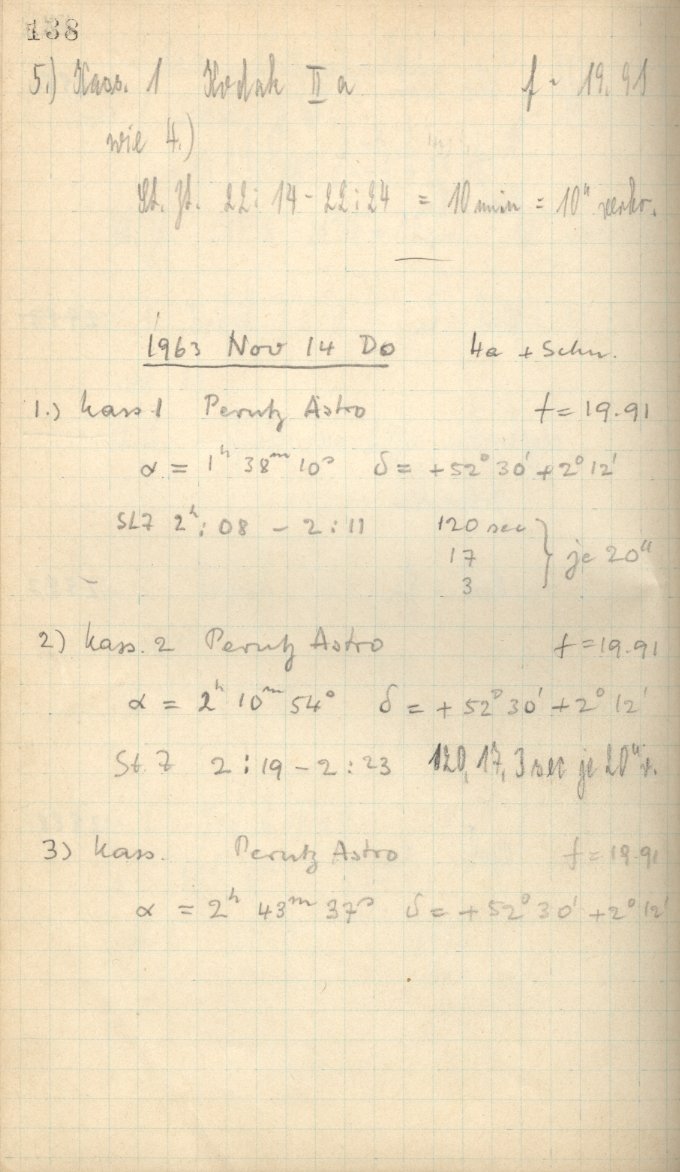 138
5.) Kass. 1 Kodak II a f = 19.91
wie 4.)
St. Zt. 22:14 - 22:24 = 10 min = 10" verkr.
1963 Nov 14 Do Ha + Schu.
1.) Kass 1 Perutz Astro f = 19.91
α = 1ʰ 38ᵐ 10ˢ δ = +52° 30' + 2° 12'
StZ 2ʰ: 08 - 2:11 120 sec
17
3 } je 20"
2) Kass. 2 Perutz Astro f = 19.91
α = 2ʰ 10ᵐ 54ˢ δ = +52° 30' + 2° 12'
St. Z 2:19 - 2:23 120, 17, 3 sec je 20" v.
3) Kass. Perutz Astro f = 19.91
α = 2ʰ 43ᵐ 37ˢ δ = +52° 30' + 2° 12'